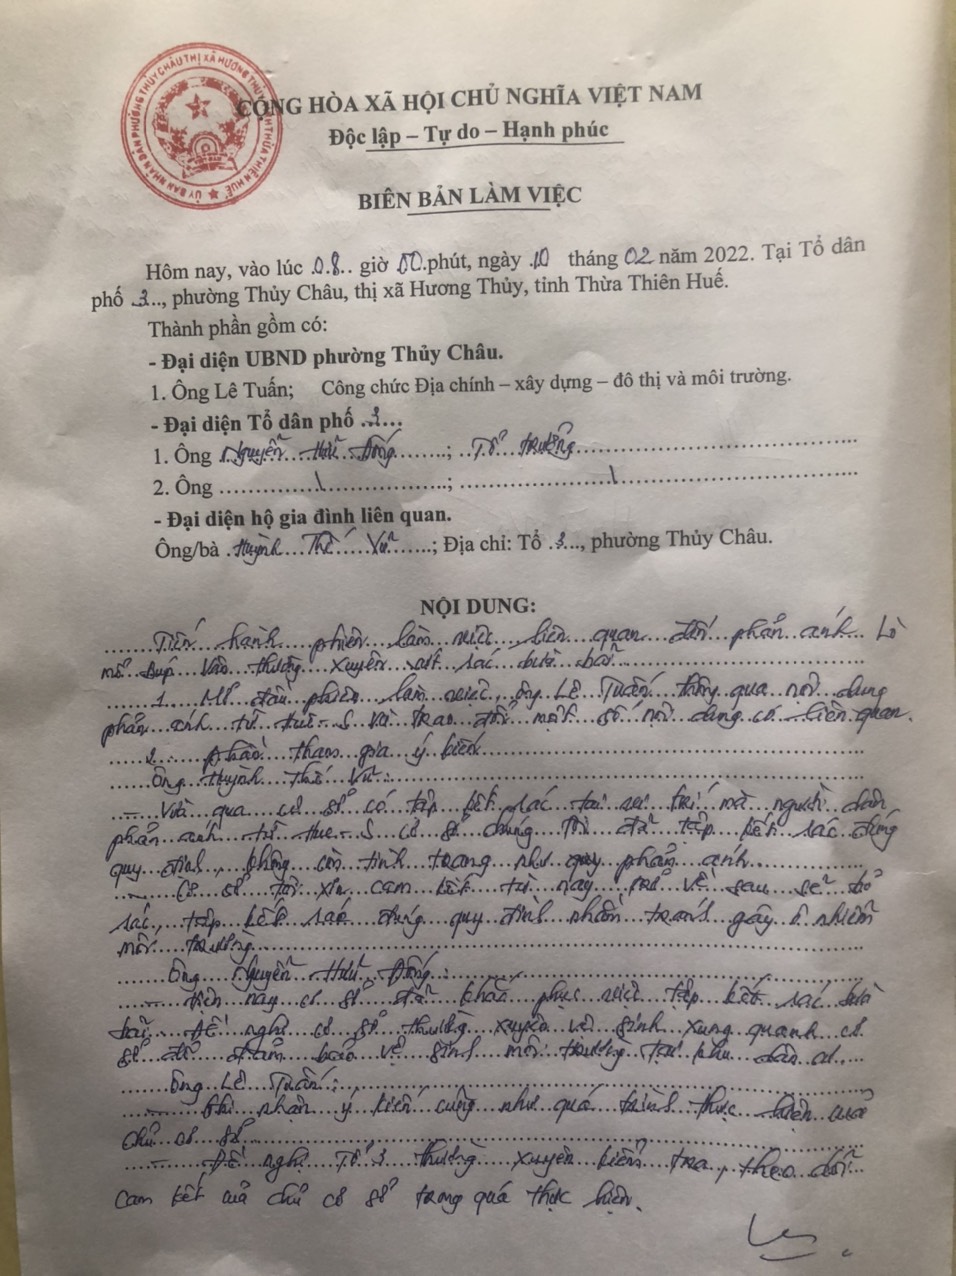 ỦY BAN NHÂN DÂN PHƯỜNG THỦY CHÂU THỊ XÃ HƯƠNG THỦY TỈNH THỪA THIÊN HUẾ
CỘNG HÒA XÃ HỘI CHỦ NGHĨA VIỆT NAM
Độc lập – Tự do – Hạnh phúc
BIÊN BẢN LÀM VIỆC
Hôm nay, vào lúc 08 giờ 00 phút, ngày 10 tháng 02 năm 2022. Tại Tổ dân
phố 3, phường Thủy Châu, thị xã Hương Thủy, tỉnh Thừa Thiên Huế.
Thành phần gồm có:
- Đại diện UBND phường Thủy Châu.
1. Ông Lê Tuấn; Công chức Địa chính – xây dựng – đô thị và môi trường.
- Đại diện Tổ dân phố 3
1. Ông Nguyễn Hữu Đống; Tổ trưởng
2. Ông \; \
- Đại diện hộ gia đình liên quan.
Ông/bà Huỳnh Thế Vũ; Địa chỉ: Tổ 3, phường Thủy Châu.
NỘI DUNG:
Tiến hành phiên làm việc liên quan đến phản ánh Lò
mổ thường xuyên rác bừa bãi
1. Mở đầu phiên làm việc, ông Lê Tuấn thông qua nội dung
phản ánh từ Hue-S và trao đổi một số nội dung có liên quan.
2. Phần tham gia ý kiến
Ông Huỳnh Thế Vũ:
- Vừa qua cơ sở có tập kết rác tại vị trí mà người dân
phản ánh từ Hue-S cơ sở chúng tôi đã tập kết rác đúng
quy định, không còn tình trạng như phản ánh
- Cơ sở tôi xin cam kết từ nay trở về sau sẽ bỏ
rác, tập kết rác đúng quy định nhằm tránh gây ô nhiễm
môi trường
Ông Nguyễn Hữu Đống:
- Hiện nay cơ sở đã khắc phục việc tập kết rác bừa
bãi. Đề nghị cơ sở thường xuyên vệ sinh xung quanh cơ
sở để đảm bảo vệ sinh môi trường tại khu dân cư.
Ông Lê Tuấn:
- Ghi nhận ý kiến cũng như quá trình thực hiện của
chủ cơ sở
- Đề nghị Tổ 3 thường xuyên kiểm tra, theo dõi
cam kết của chủ cơ sở trong quá thực hiện.